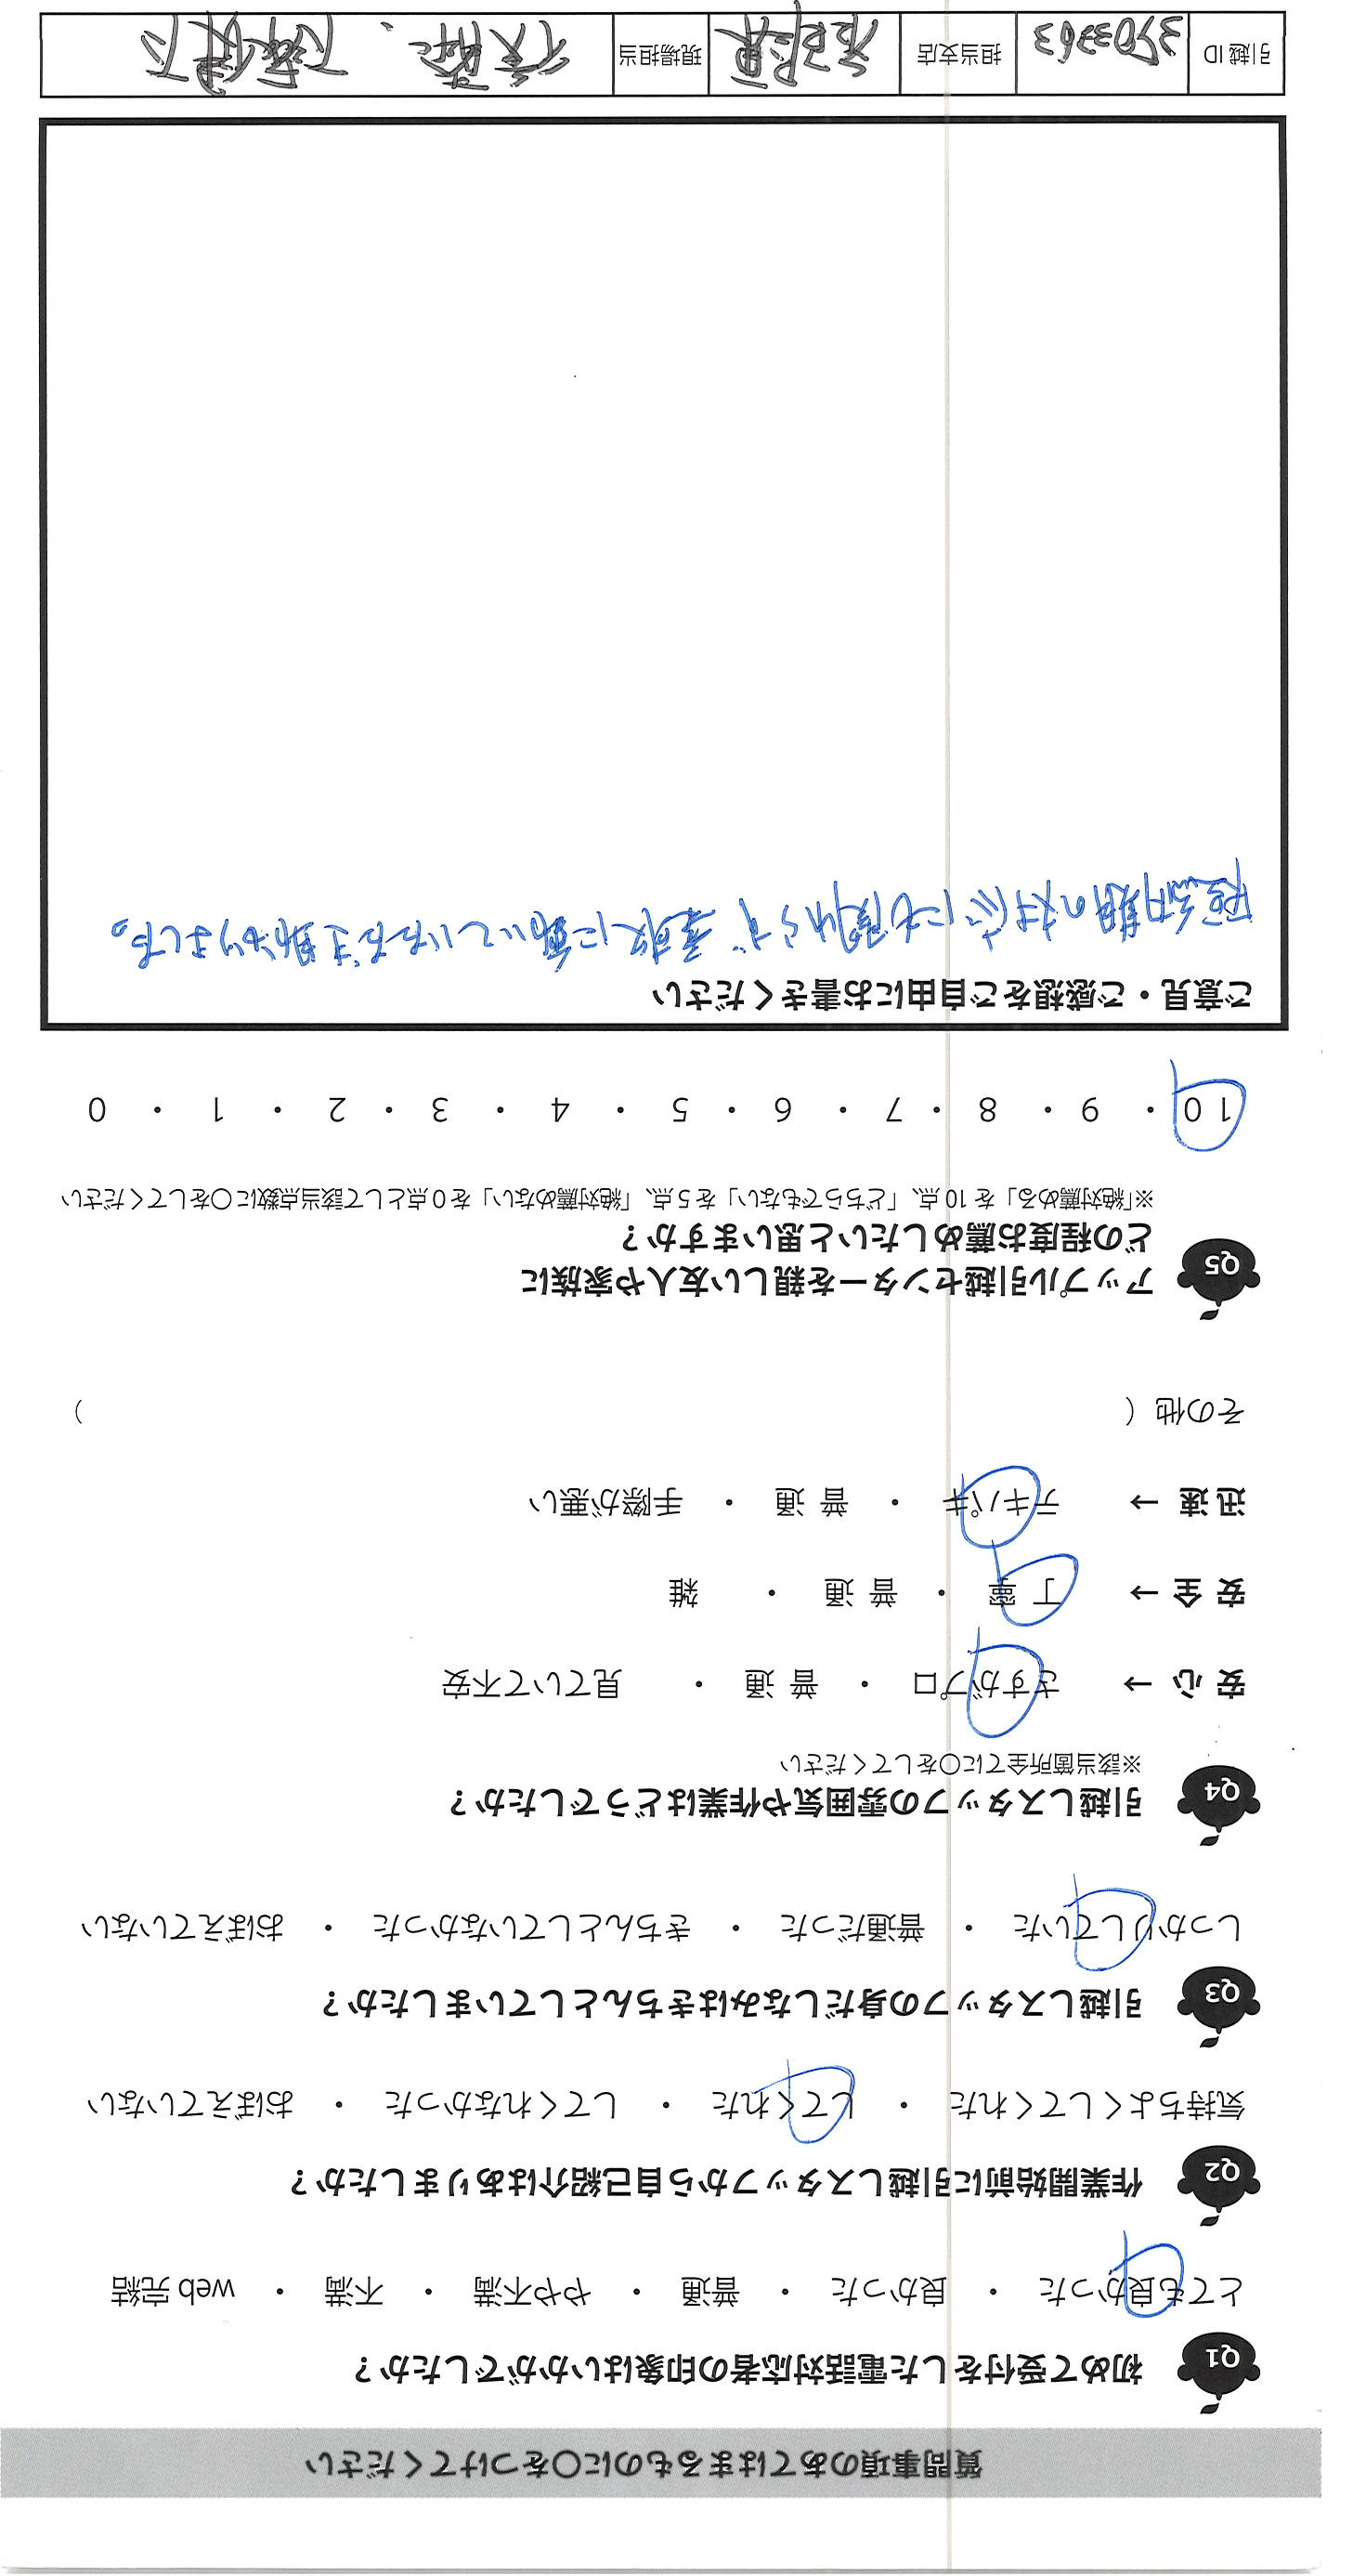 質問事項のあてはまるものに〇をつけてください
Q1 初めて受付をした電話対応者の印象はいかがでしたか？
とても良かった ・ 良かった ・ 普通 ・ やや不満 ・ 不満 ・ web 完結
Q2 作業開始前に引越しスタッフから自己紹介はありましたか？
気持ちよくしてくれた ・ してくれた ・ してくれなかった ・ おぼえていない
Q3 引越しスタッフの身だしなみはきちんとしていましたか？
しっかりしていた ・ 普通だった ・ きちんとしていなかった ・ おぼえていない
Q4 引越しスタッフの雰囲気や作業はどうでしたか？
※該当箇所全てに〇をしてください
安 心 → さすがプロ ・ 普 通 ・ 見ていて不安
安 全 → 丁 寧 ・ 普 通 ・ 雑
迅 速 → テキパキ ・ 普 通 ・ 手際が悪い
その他（ ）
Q5 アップル引越センターを親しい友人や家族に
どの程度お薦めしたいと思いますか？
※「絶対薦める」を 10 点、「どちらでもない」を 5 点、「絶対薦めない」を 0 点として該当点数に〇をしてください
10 ・ 9 ・ 8 ・ 7 ・ 6 ・ 5 ・ 4 ・ 3 ・ 2 ・ 1 ・ 0
ご意見・ご感想をご自由にお書きください
短納期の対応にも関わらず柔軟に動いていただき助かりました。
引越 ID 3703363 担当支店 現場担当